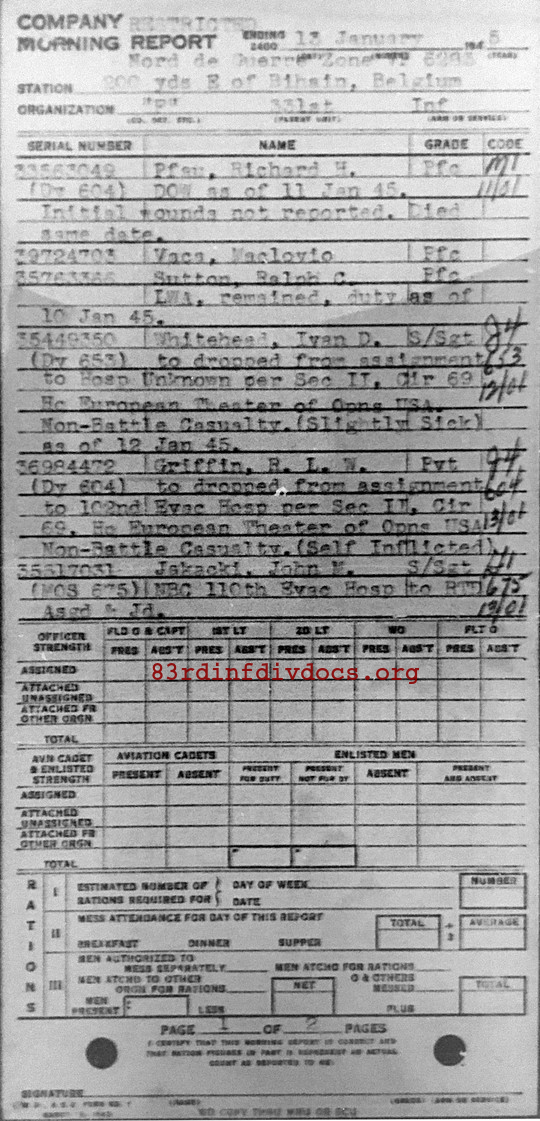 COMPANY RESTRICTED
MORNING REPORT ENDING 2400 13 January 1945
Nord de Guerre Zone
STATION 200 yds E of Bihain, Belgium
ORGANIZATION "F" 331st Inf
(CO. DET. ETC.) (PARENT UNIT) (ARM OR SERVICE)
SERIAL NUMBER NAME GRADE CODE
33563049 Pfau, Richard H. Pfc M1
(Dy 604) DOW as of 11 Jan 45. 11/01
Initial wounds not reported. Died
same date.
39724703 Vaca, Maclovio Pfc
35763366 Sutton, Ralph C. Pfc
LWA, remained, duty as of
10 Jan 45.
35449350 Whitehead, Ivan D. S/Sgt
(Dy 653) to dropped from assignment 653
to Hosp Unknown per Sec II, Cir 69 12/01
Hq European Theater of Opns USA.
Non-Battle Casualty.(Slightly Sick)
as of 12 Jan 45.
36984472 Griffin, R. L. W. Pvt
(Dy 604) to dropped from assignment 604
to 102nd Evac Hosp per Sec II, Cir
69, Hq European Theater of Opns USA 13/01
Non-Battle Casualty.(Self Inflicted)
35517031 Jakacki, John M. S/Sgt
(MOS 675) NBC 110th Evac Hosp to RTD 675
Asgd & Jd. 13/01
OFFICER STRENGTH FLD O & CAPT 1ST LT 2D LT WO FLT O
PRES ABS'T PRES ABS'T PRES ABS'T PRES ABS'T PRES ABS'T
ASSIGNED
83rdinfdivdocs.org
ATTACHED UNASSIGNED
ATTACHED FR OTHER ORGN
TOTAL
AVN CADET & ENLISTED STRENGTH AVIATION CADETS ENLISTED MEN
PRESENT ABSENT PRESENT FOR DUTY PRESENT NOT FOR DY ABSENT PRESENT AND ABSENT
ASSIGNED
ATTACHED UNASSIGNED
ATTACHED FR OTHER ORGN
TOTAL
RATIONS
I ESTIMATED NUMBER OF RATIONS REQUIRED FOR DAY OF WEEK DATE NUMBER
II MESS ATTENDANCE FOR DAY OF THIS REPORT TOTAL ÷ 3 AVERAGE
BREAKFAST DINNER SUPPER
III MEN AUTHORIZED TO MESS SEPARATELY MEN ATCHD FOR RATIONS
MEN ATCHD TO OTHER ORGN FOR RATIONS NET O & OTHERS MESSED TOTAL
MEN PRESENT LESS PLUS
PAGE 1 OF 2 PAGES
I CERTIFY THAT THIS MORNING REPORT IS CORRECT AND
THAT RATION FIGURES IN PART III REPRESENT AN ACTUAL
COUNT AS REPORTED TO ME:
SIGNATURE
(NAME) (GRADE) (ARM OR SERVICE)